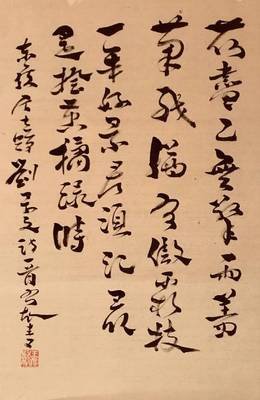 荷盡已無擎雨蓋
菊殘猶有傲霜枝
一年好景君須記最
是橙黃橘綠時
東坡居士贈劉景文詩一首